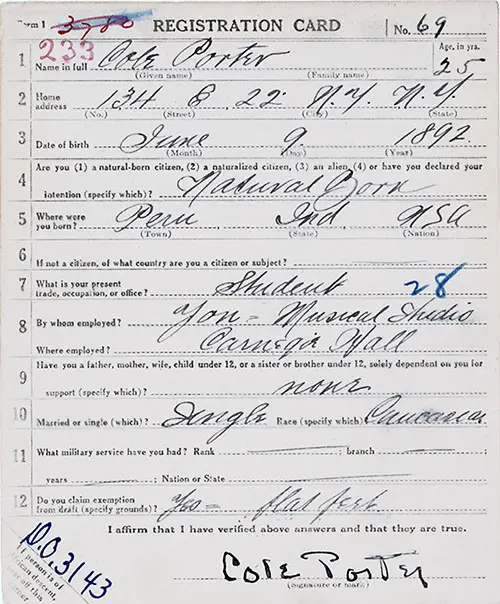 Form 1 3780 REGISTRATION CARD No. 69
233
1 Name in full Cole Porter Age, in yrs. 25
(Given name) (Family name)
2 Home address 134 E 22 N.Y. N.Y.
(No.) (Street) (City) (State)
3 Date of birth June 9 1892
(Month) (Day) (Year)
Are you (1) a natural-born citizen, (2) a naturalized citizen, (3) an alien, (4) or have you declared your
4 intention (specify which)? Natural Born
5 Where were you born? Peru Ind USA
(Town) (State) (Nation)
6 If not a citizen, of what country are you a citizen or subject?
7 What is your present trade, occupation, or office? Student 28
8 By whom employed? Yon = Musical Studio
Where employed? Carnegie Hall
9 Have you a father, mother, wife, child under 12, or a sister or brother under 12, solely dependent on you for
support (specify which)? none
10 Married or single (which)? Single Race (specify which) Caucasian
11 What military service have you had? Rank ; branch
years ; Nation or State
12 Do you claim exemption from draft (specify grounds)? Yes = flat feet
I affirm that I have verified above answers and that they are true.
D.O. 3143
If person is of
African descent,
off this
Cole Porter
(Signature or mark)